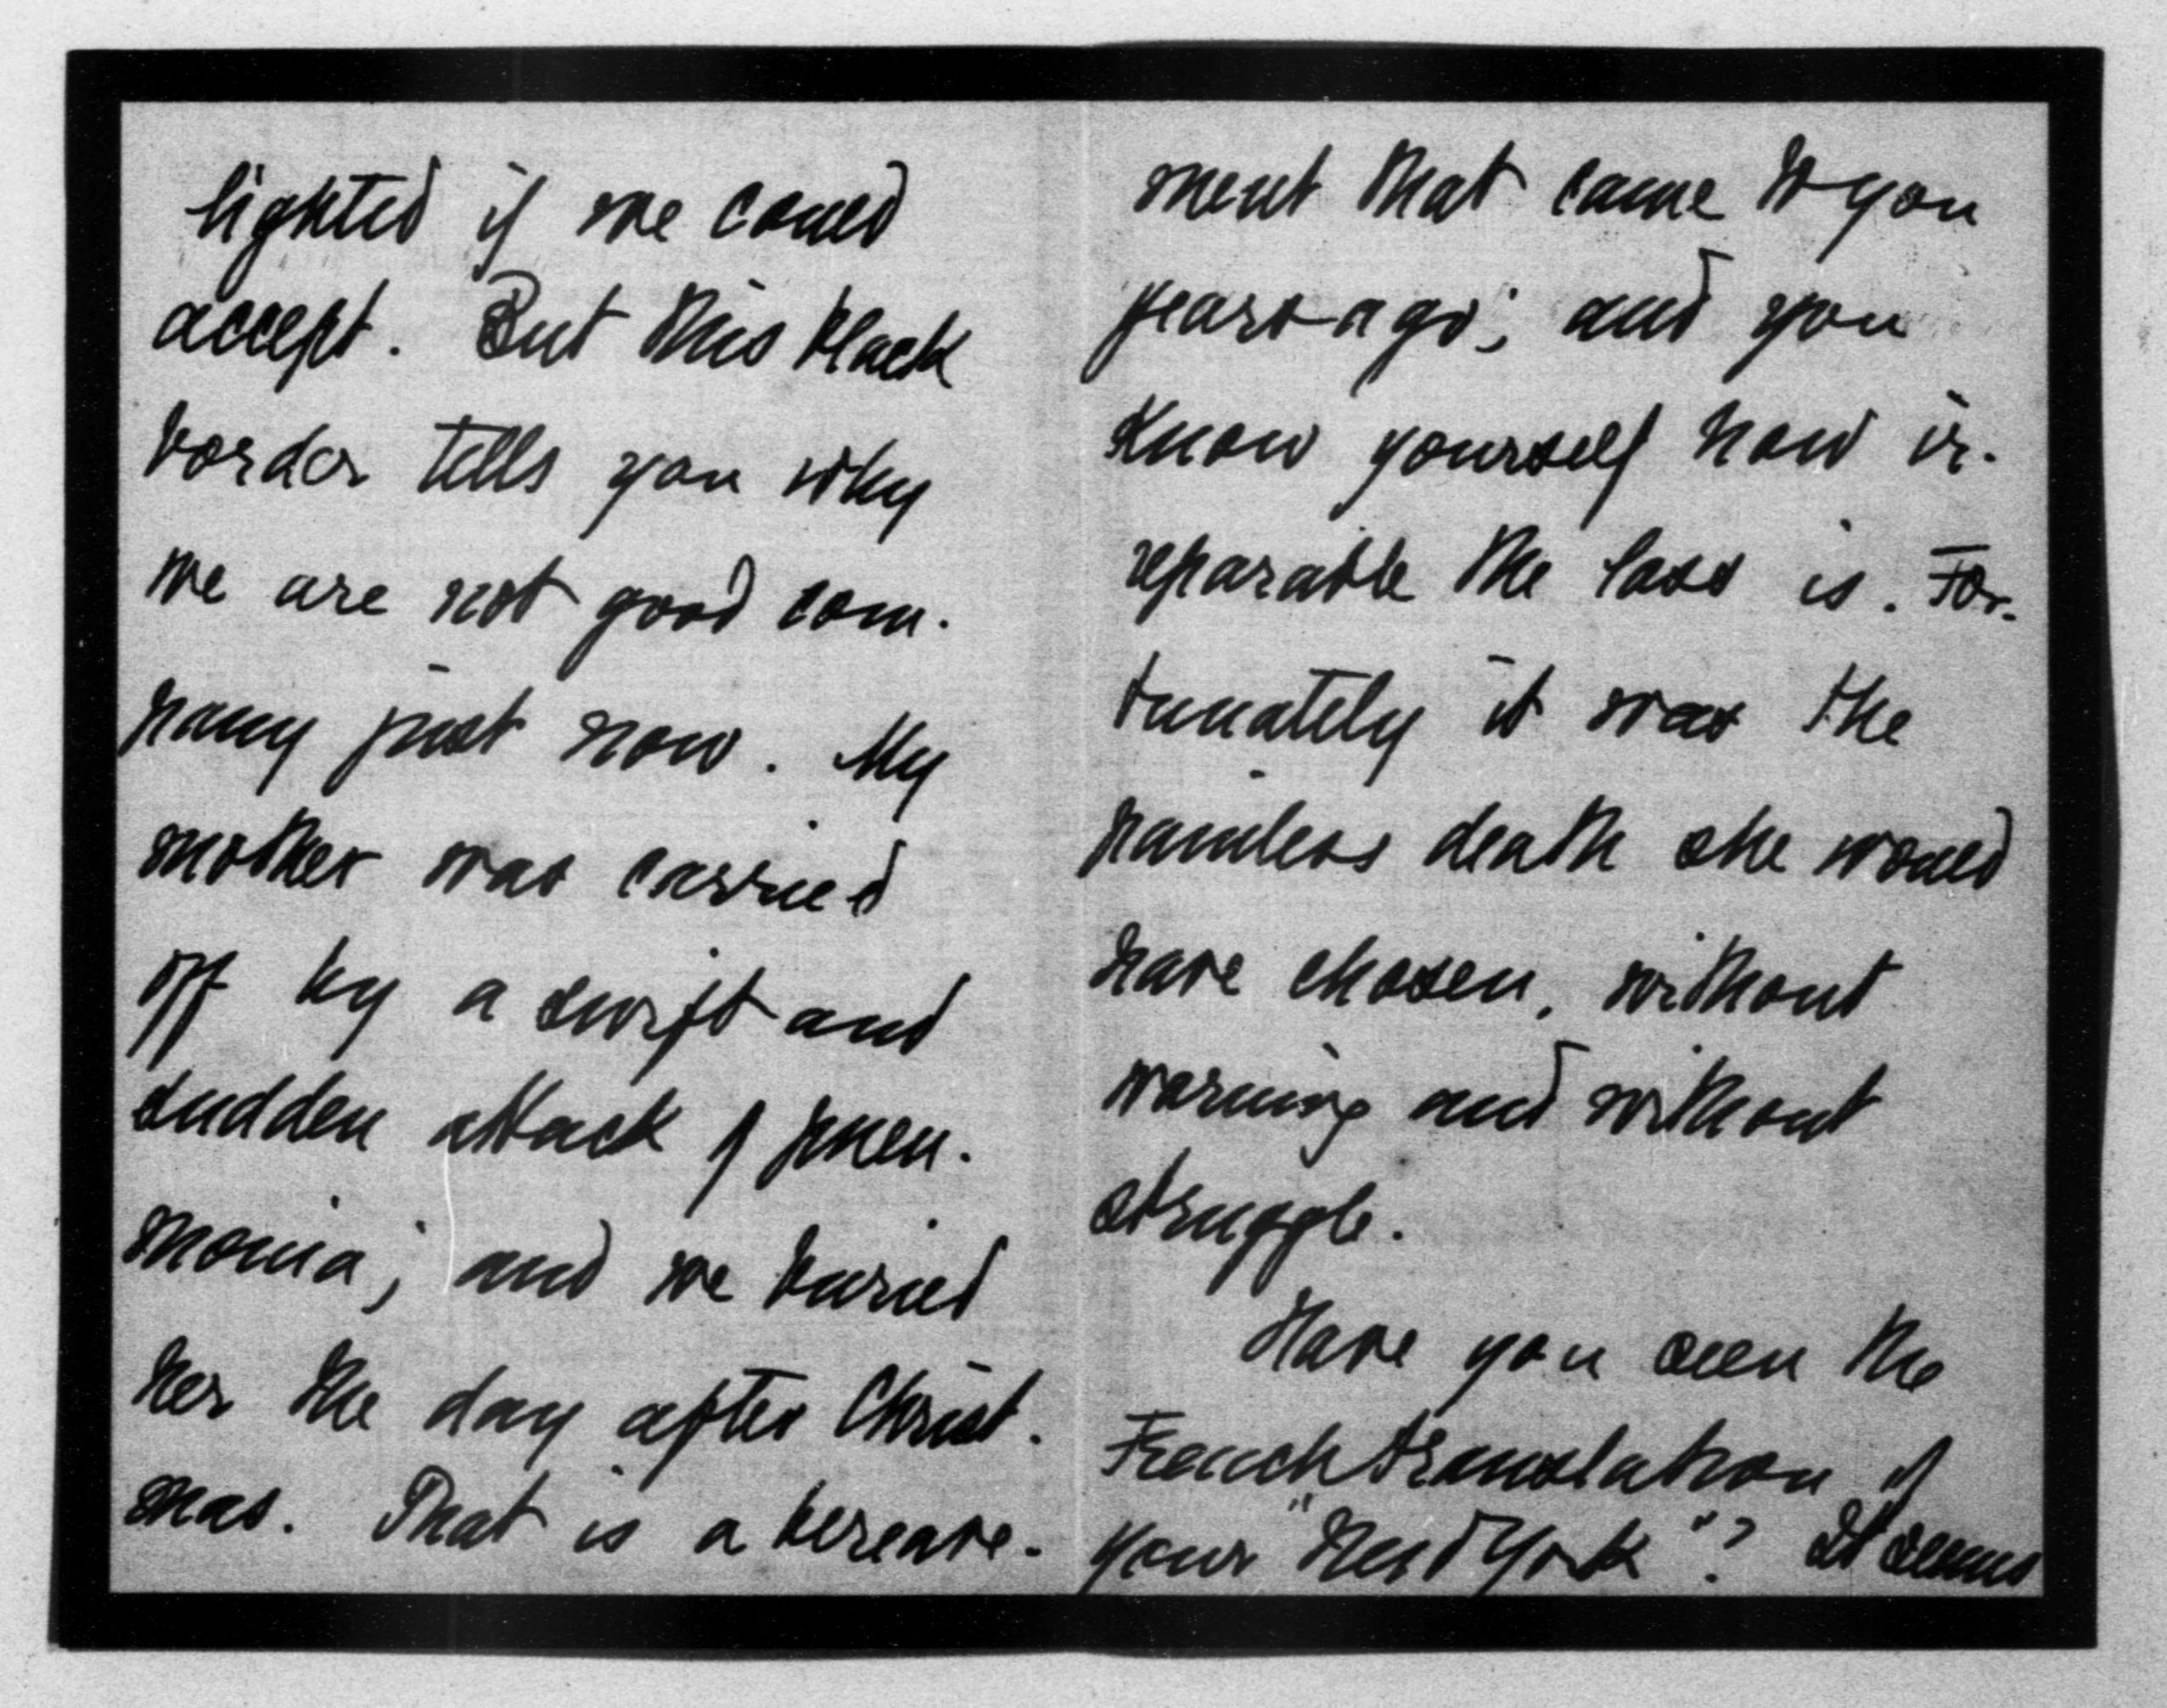 lighted if we could
accept. But this black
border tells you why
we are not good com-
pany just now. My
mother was carried
off by a swift and
sudden attack of pneu-
monia; and we buried
her the day after Christ-
mas. That is a bereave-
ment that came to you
years ago; and you
know yourself how ir-
reparable the loss is. For-
tunately it was the
painless death she would
have chosen, without
warning and without
struggle.
Have you seen the
French translation of
your "New York"? It seems